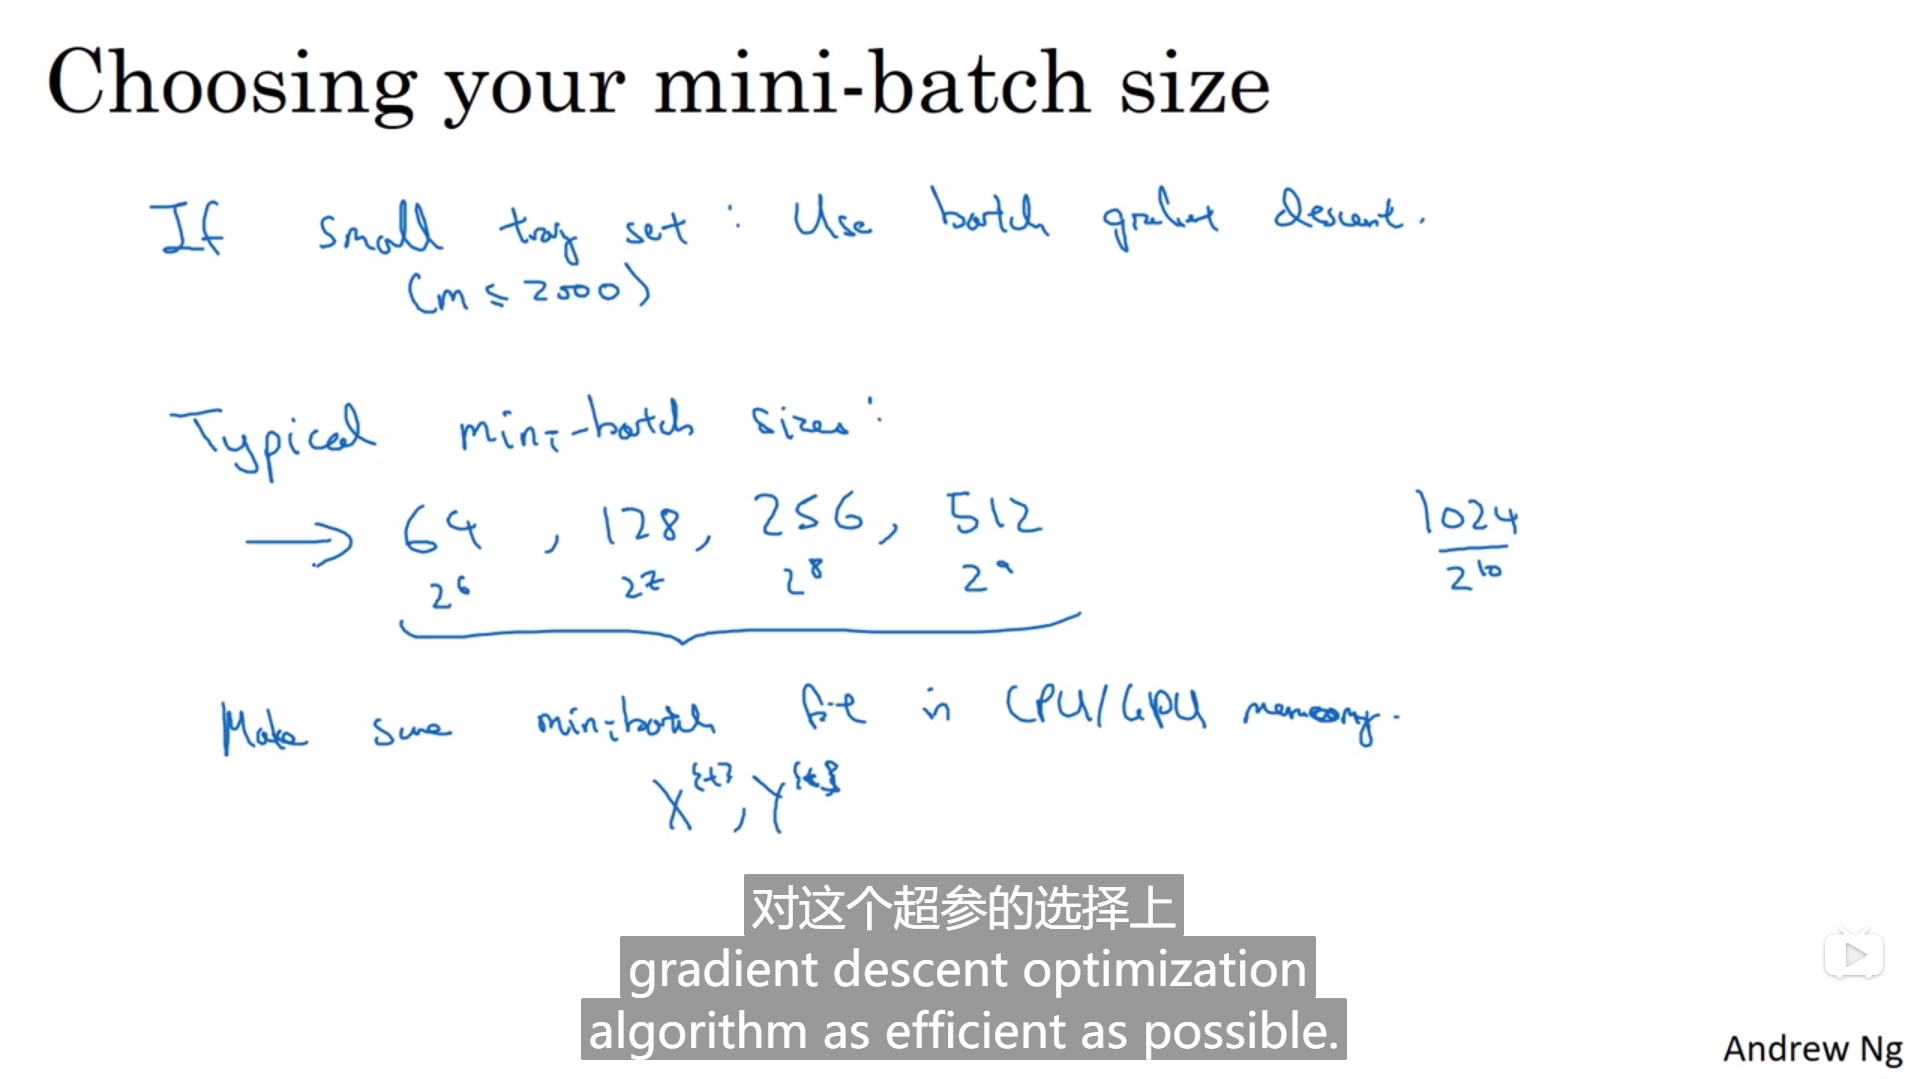 Choosing your mini-batch size
If small tray set : Use batch gradient descent.
(m ≤ 2000)
Typical mini-batch sizes:
→ 64 , 128, 256, 512 1024
2^6 2^7 2^8 2^9 2^10
Make sure minibatch fit in CPU/GPU memory.
X^{t}, Y^{t}
对这个超参的选择上
gradient descent optimization
algorithm as efficient as possible.
Andrew Ng